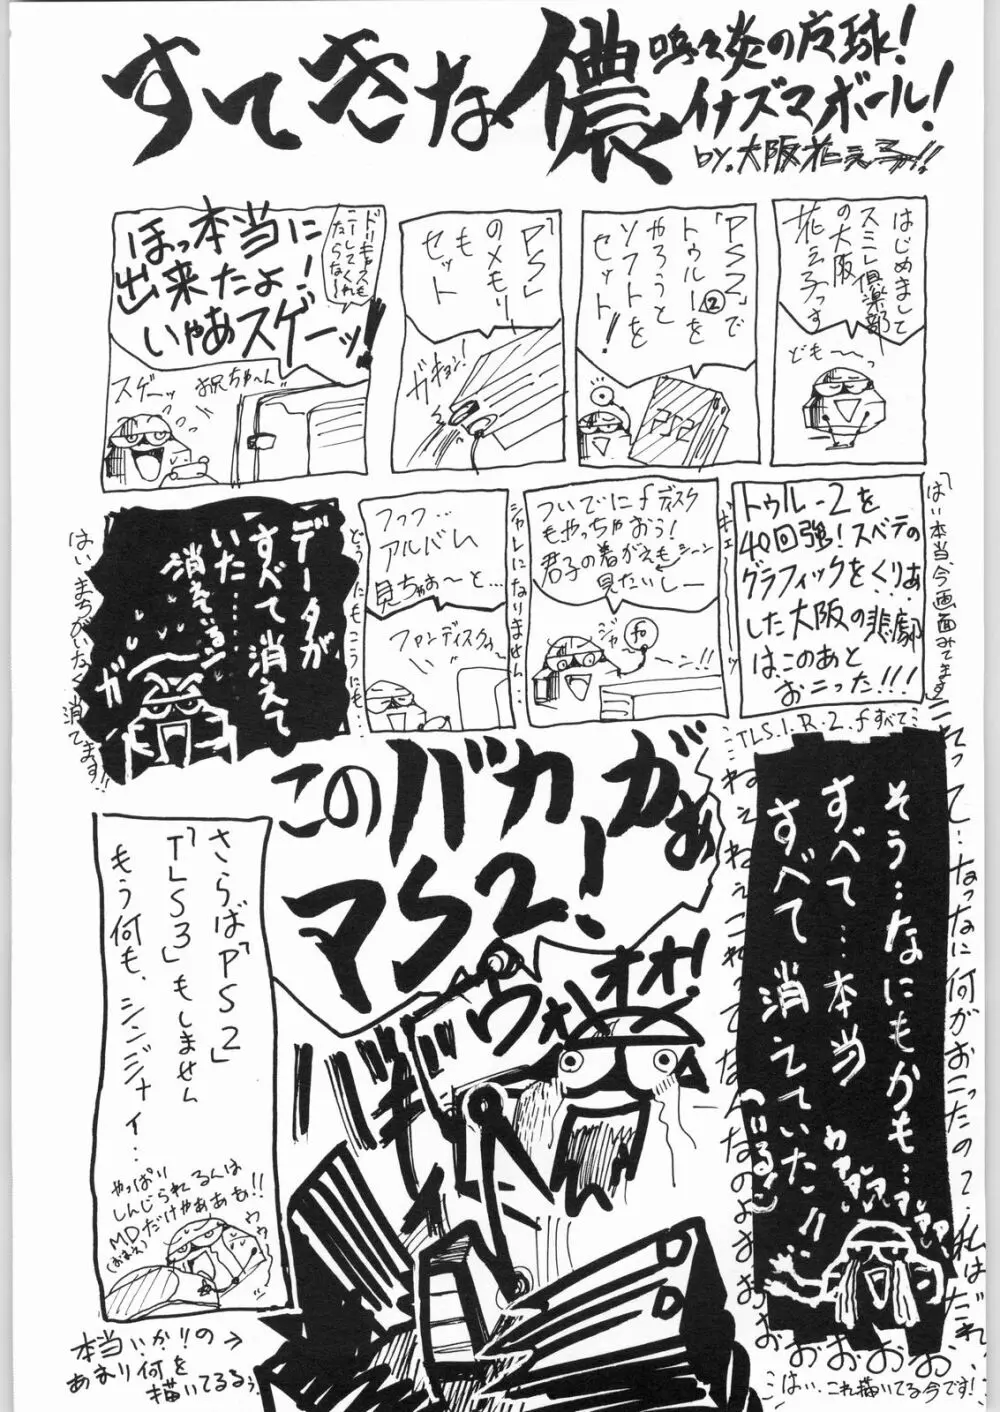 すてきな儂
嗚々炎の広球!
イナズマボール!
by.大阪花え子っ!!
はじめまして
スミレ倶楽部
の大阪
花え子っす
ども〜っ
「PS2」で
トゥルー②を
やろうと
ソフトを
セット!
PS2
「PS」
のメモリー
も
セット
ガキョン!
ほっ本当に
出来たよ!
いやあスゲーッ!!
ドリキャスも
こーしてくれ
たらな〜
スゲーッ
お兄ちゃ〜ん
トゥルー2を
40回強!スベテの
グラフィックをくりあ
した大阪の悲劇
はこのあと
おこった!!!
ついでにfディスク
もやっちゃおう!
君子の着がえもシーン
見たいしー
ジャ
〜ン!!
シャレになりません…
フッフ…
アルバム
見ちゃお〜と…
ファンディスクの〜
どうしたもこうにも…
データが
すべて消えて
いた……
消えているデ
ガ
はい、まちがいなく消てます!!
「はい本当、今画面みてます」
TLS.1.R.2.fすべて…
そう‥なにもかも…
すべて…本当
すべて消えていた!!
(いるデ)
わァァァァァァ
これって…なってなに何がおこったの?私はだれ
ねぇねぇねぇこれってなんなのよおぉおおおおおお
このバカがぁ
マS2!
ウオオオ!
さらば「PS2」
「TLS3」もしません
もう何も、シンジナイ…
やっぱり
しんじられるんは
MDだけやああも!!
(おまえ)
ウウ
本当いかりの→
あまり何を
描いてるぅ
はい…これ描いてる今です!